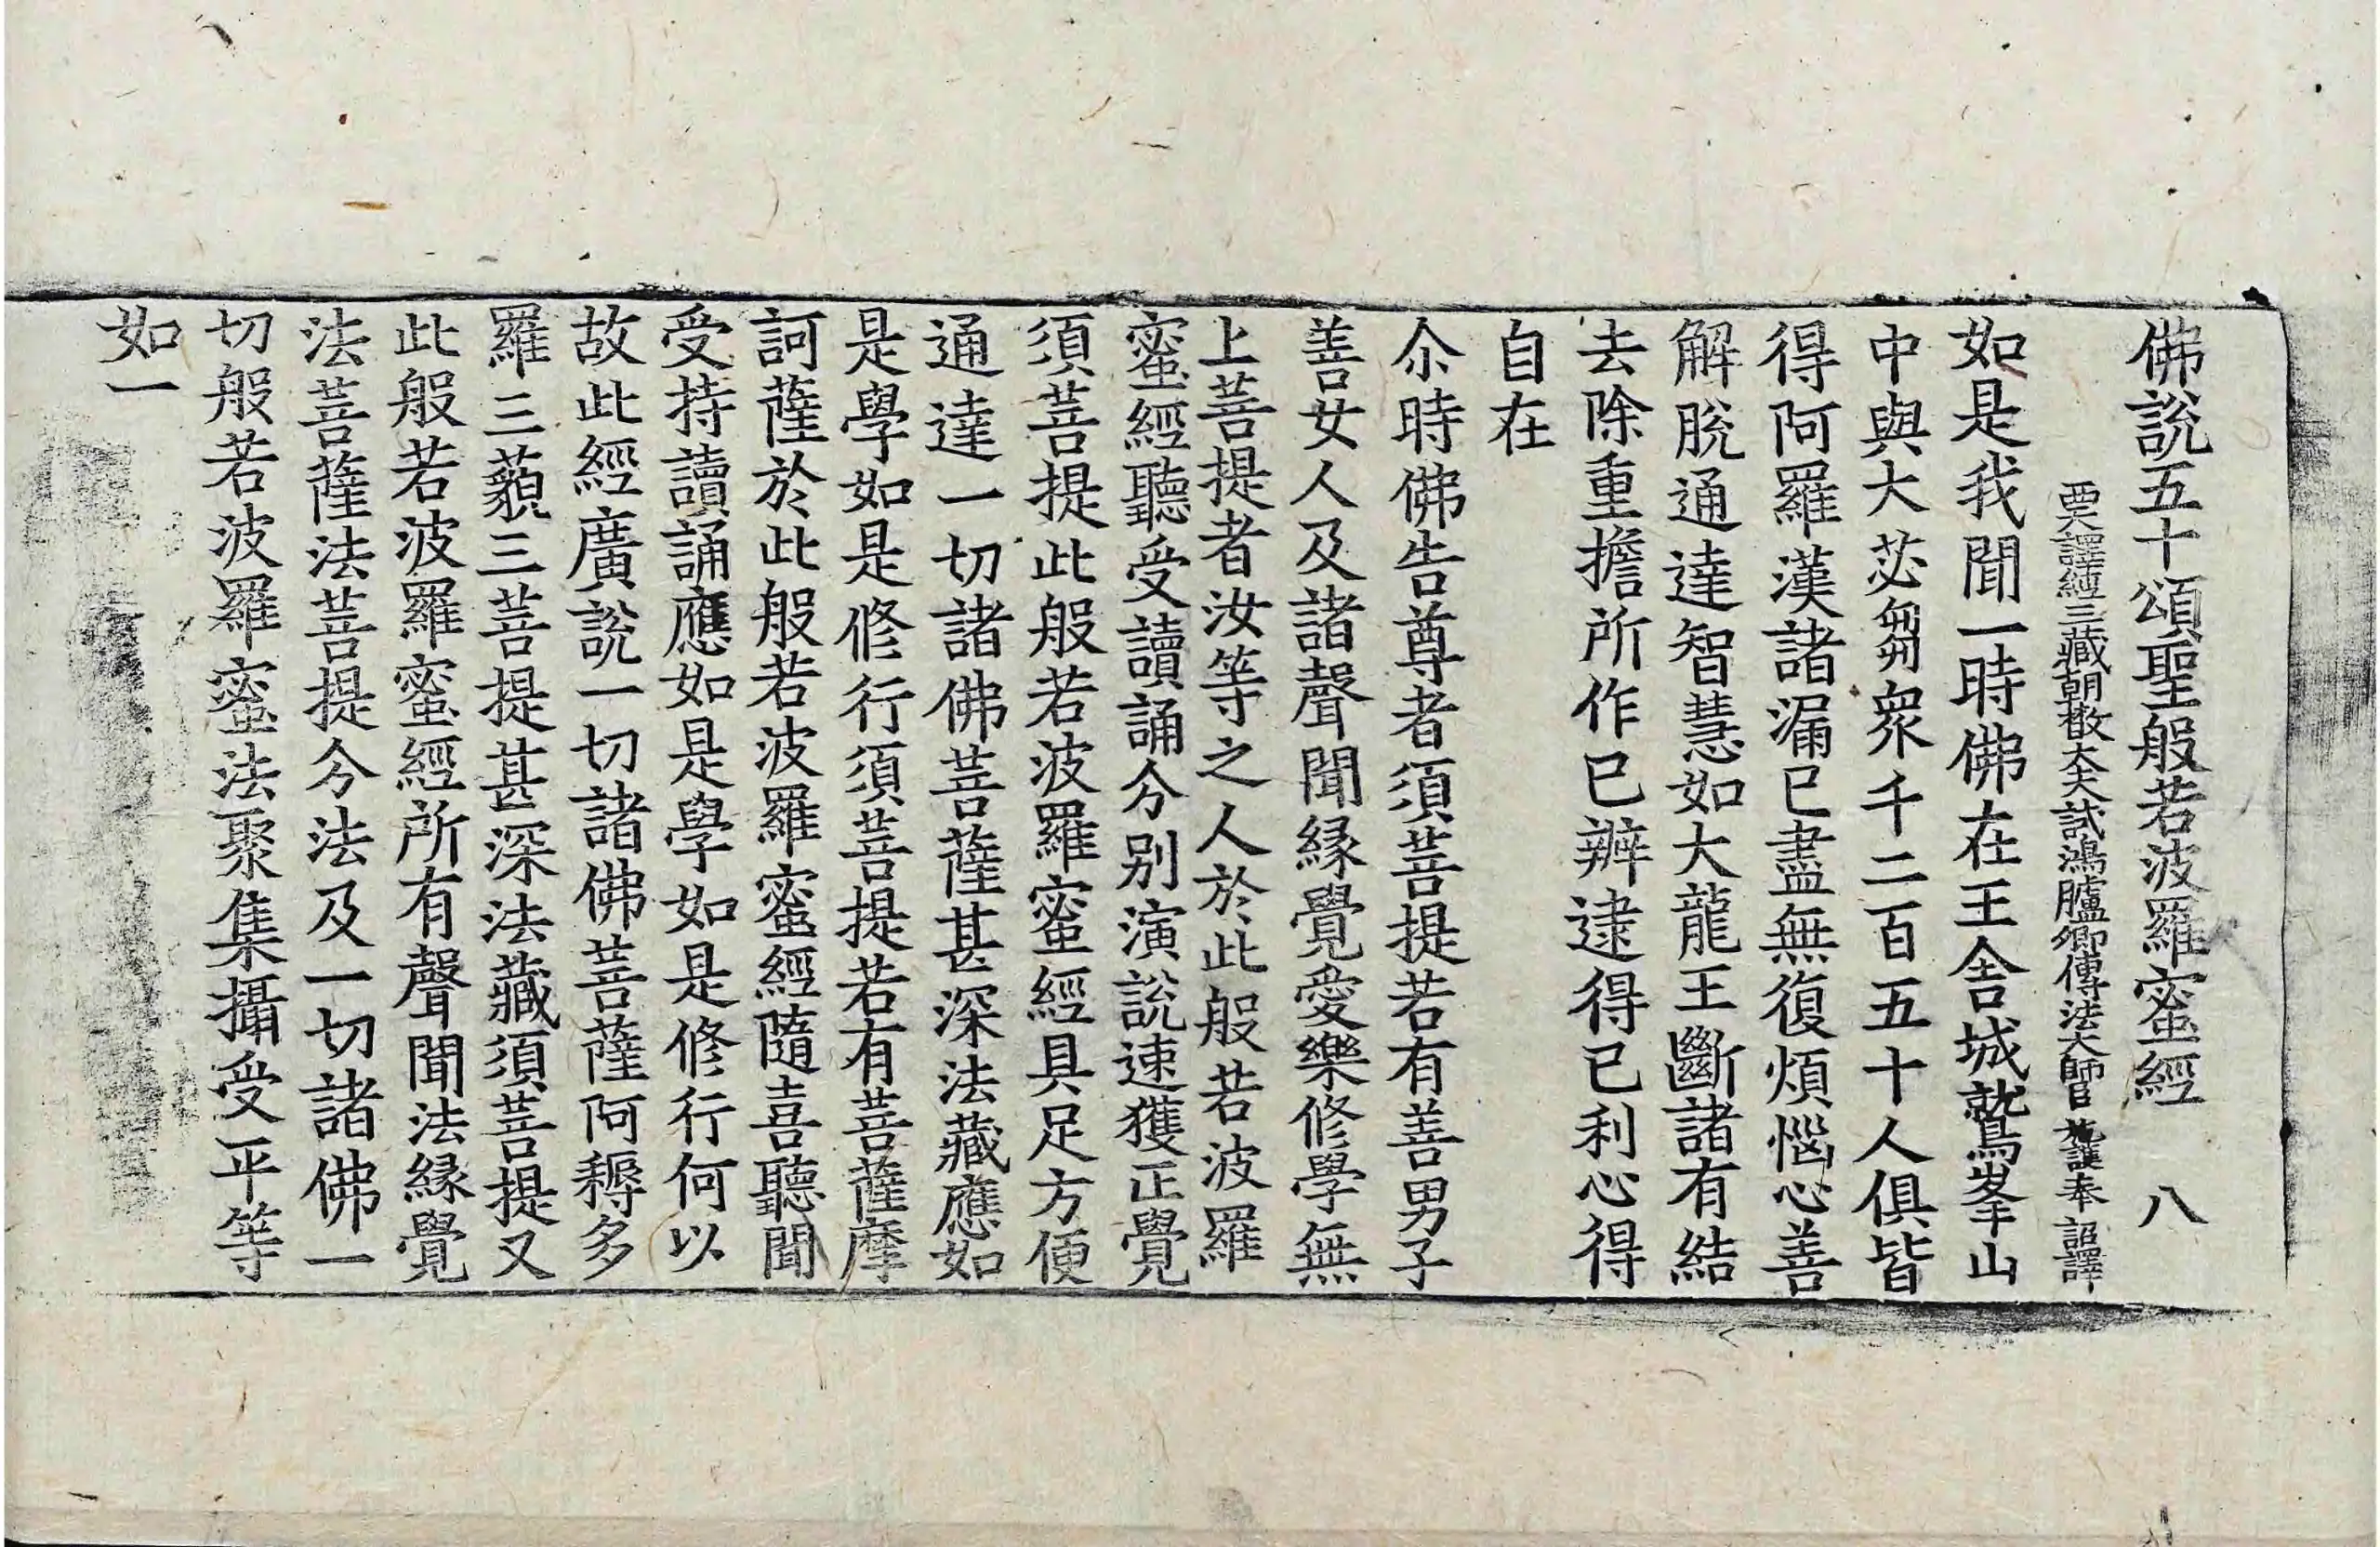 佛說五十頌聖般若波羅蜜經 八
西天譯經三藏朝散大夫試鴻臚卿傳法大師臣 施護奉 詔譯
如是我聞一時佛在王舍城鷲峯山
中與大苾芻衆千二百五十人俱皆
得阿羅漢諸漏已盡無復煩惱心善
解脫通達智慧如大龍王斷諸有結
去除重擔所作已辦逮得已利心得
自在
尒時佛告尊者須菩提若有善男子
善女人及諸聲聞緣覺愛樂修學無
上菩提者汝等之人於此般若波羅
蜜經聽受讀誦分別演說速獲正覺
須菩提此般若波羅蜜經具足方便
通達一切諸佛菩薩甚深法藏應如
是學如是修行須菩提若有菩薩摩
訶薩於此般若波羅蜜經隨喜聽聞
受持讀誦應如是學如是修行何以
故此經廣說一切諸佛菩薩阿耨多
羅三藐三菩提甚深法藏須菩提又
此般若波羅蜜經所有聲聞法緣覺
法菩薩法菩提分法及一切諸佛一
切般若波羅蜜法聚集攝受平等
如一